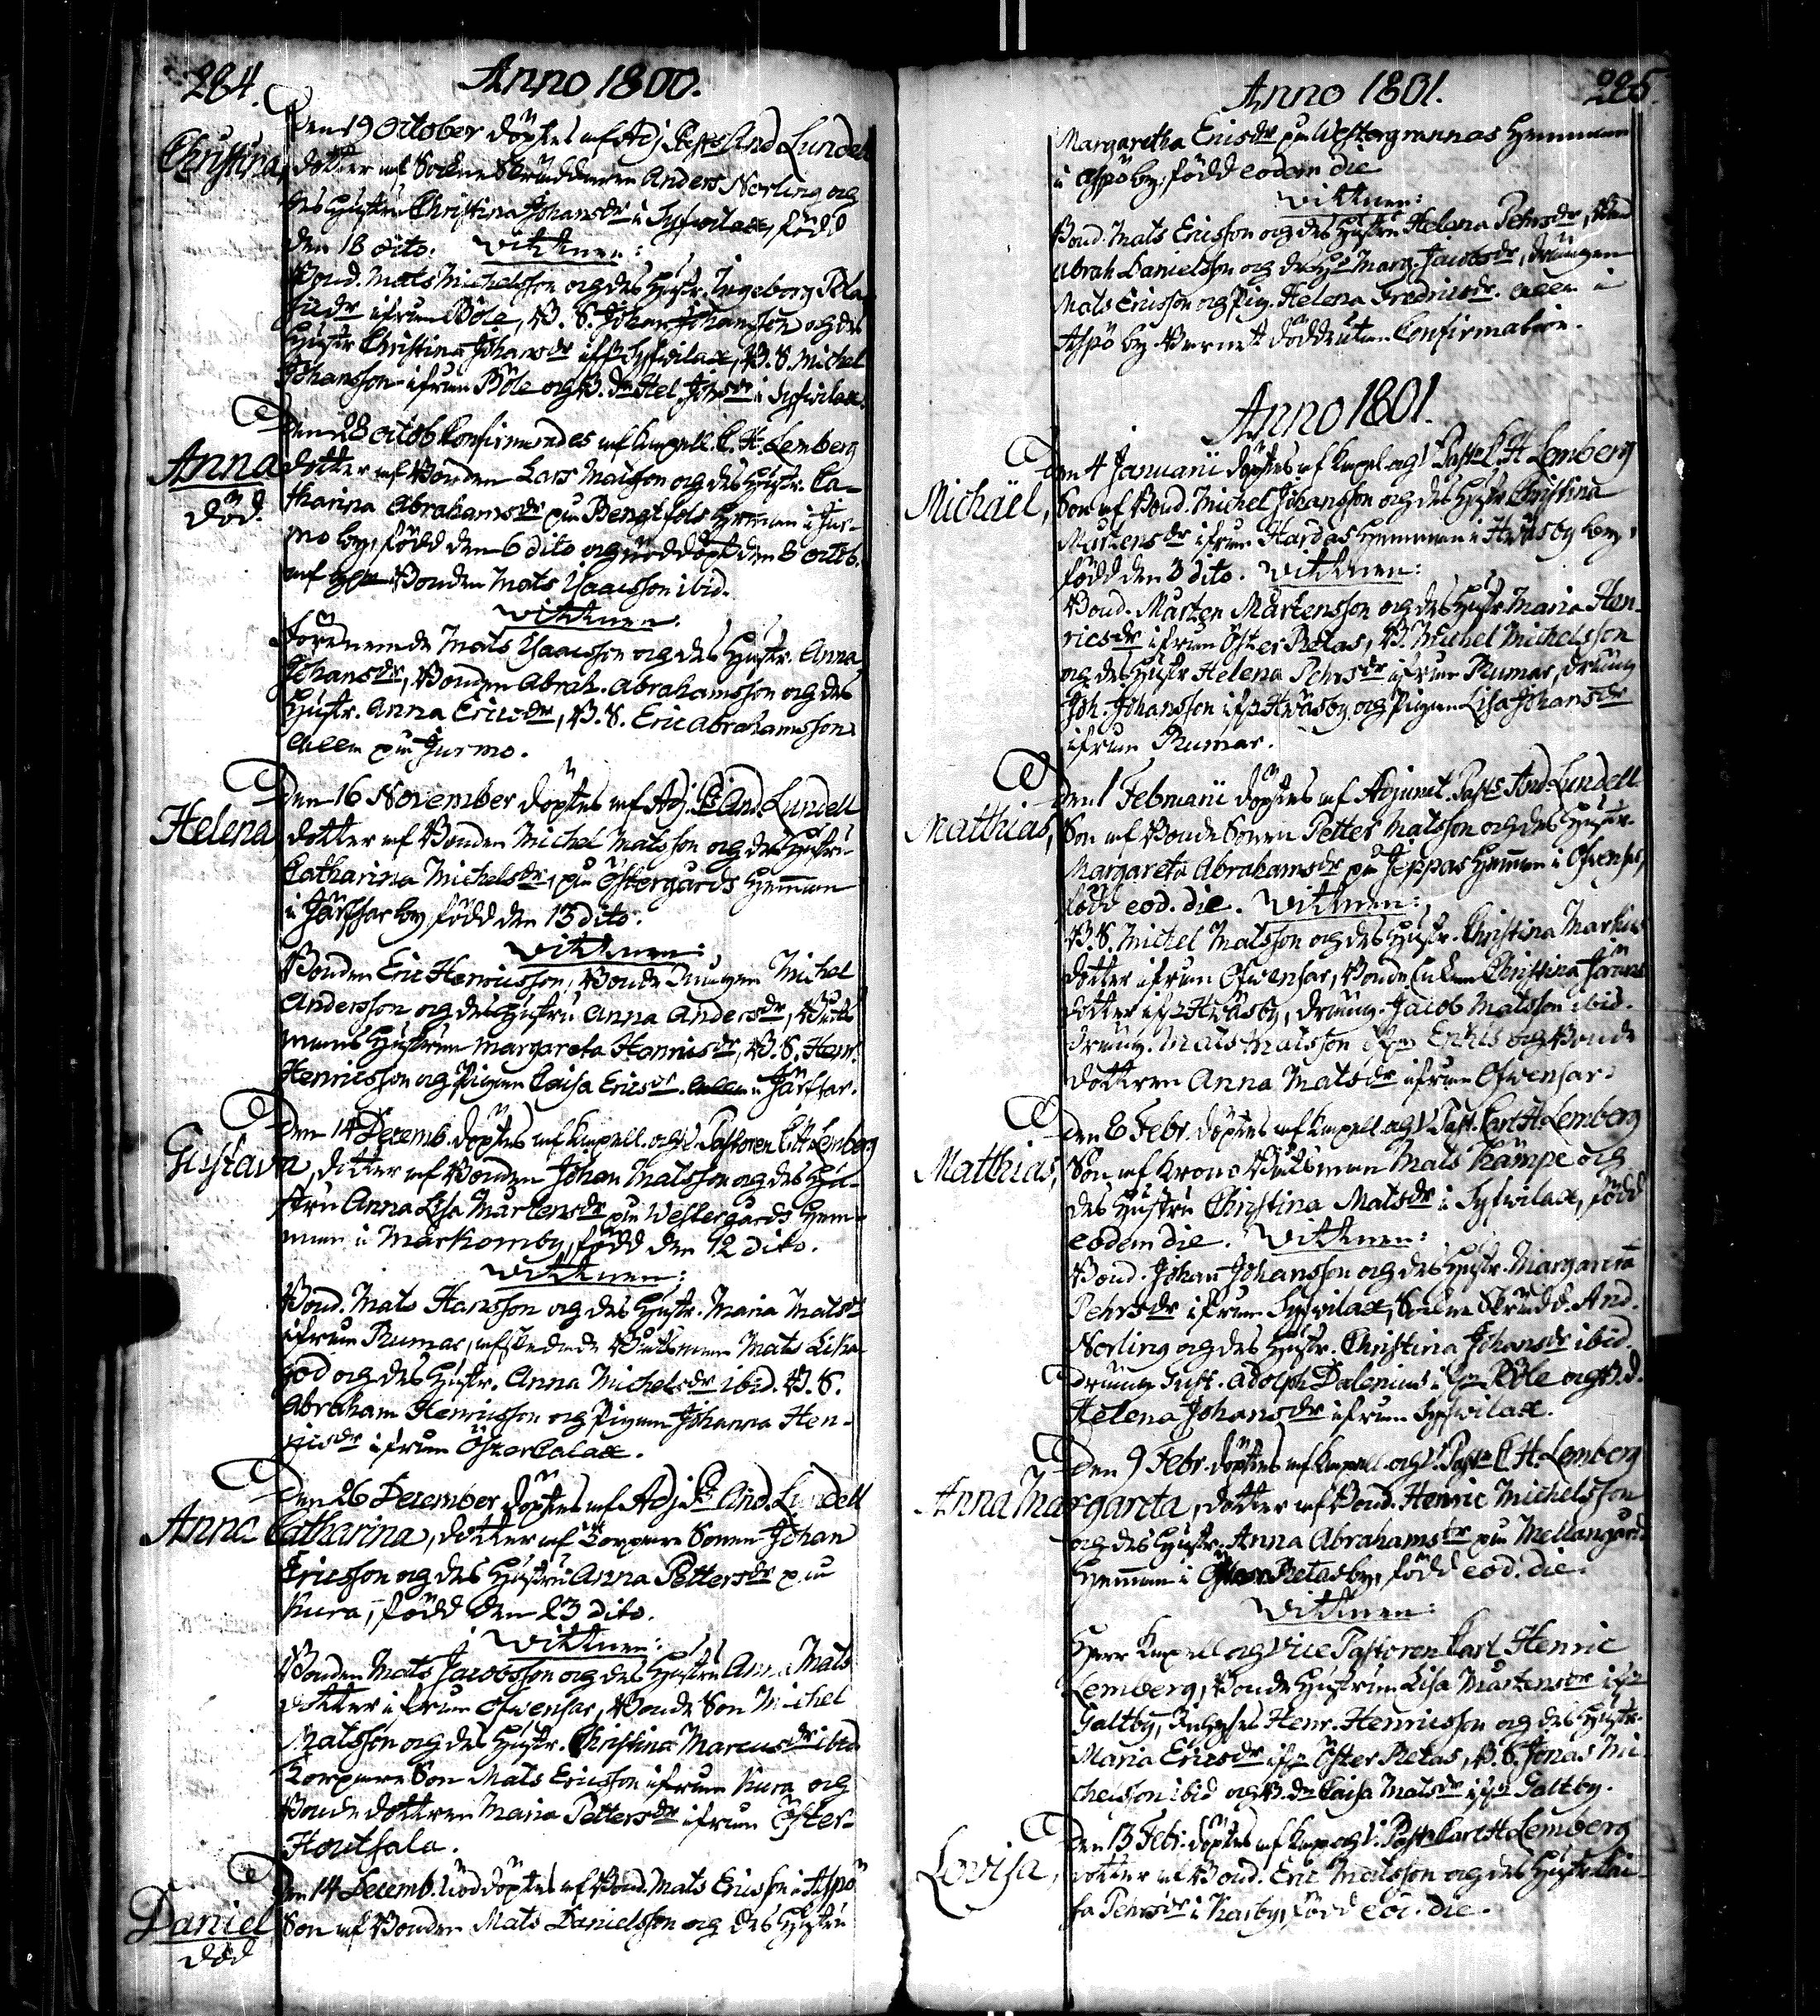 284.
Anno 1800.
Den 19 October döptes af Adj. Past. And. Lundell
Christina, dotter af Sockne Skräddaren Anders Norling och
des hustru Christina Johansdr i Syfvilax, född
den 18 dito. Vittnen:
Bond. Mats Michelsson och des hustr. Ingeborg
ifrån Böle, B. S. Johan Johansson och des
hustr Christina Johansdr ifr. Syfvilax, B. S. Michel
Johansson ifrån Böle och B. dr Hel. Johsdr i Syfvilax.
Den 28 octob confirmerades af Capell. C. H. Lemberg
Anna dotter af Bonden Lars Matsson och des hustr. Ca-
död. tharina Abrahamsdr på Bengtsols Hemman i Jur-
mo by, född den 6 dito och nöddöpt den 8 octob.
af Bonden Mats Isaacsson ibid.
Vittnen:
Förenemde Mats Isaacsson och des hustr. Anna
Johansdr, Bonden Abrah. Abrahamsson och des
hustr. Anna Ericsdr, B. S. Eric Abrahamsson
allena på Jurmo.
Den 16 November döptes af Adj. Pst And. Lundell
Helena dotter af Bonden Michel Matsson och des hustru
Catharina Michelsdr, på Östergårds Hemman
i Järfsar by född den 13 dito.
Vittnen:
Bonden Eric Henricsson, Bonde Drängen Michel
Andersson och des hustru Anna Andersdr, Båts
mans hustrun Margareta Henricsdr, B. S. Henr.
Henricsson och Pigan Caisa Ericsdr. i Järfsar.
Den 14 Decemb. döptes af Capell. och V. Pastoren C. H. Lemberg
Gustava, dotter af Bonden Johan Matsson och des hu-
stru Anna Lisa Mårtensdr på Westergårds Hem-
man i Märkomby, född den 12 dito.
Vittnen:
Bond. Mats Hansson och des hustr. Maria Matsdr
ifrån Rumar, afskedade Båtsman Mats Lika
god och des hustr. Anna Michelsdr ibid. B. S.
Abraham Henricsson och Pigan Johanna Hen-
ricsdr ifrån Öster Calax.
Den 26 December döptes af Adj. Pst And. Lundell
Anna Catharina, dotter af Torpare Sonen Johan
Ericsson och des hustru Anna Pettersdr på
Kura, född den 23 dito.
Vittnen:
Bonden Mats Jacobsson och des hustru Anna Mats
dotter ifrån Ofvensar, Bonde Son Michel
Matsson och des hustr. Christina Marcusdr ibid
Torpare Son Mats Ericsson ifrån Kura och
Bonde dottren Maria Pettersdr ifrån Öster-
Houtsala.
Den 14 Decemb. nöddöptes af Bond. Mats Ericsson i Aspö
Daniel Son af Bonden Mats Danielsson och des hustru
död
Anno 1801.
285.
Margaretha Ericsdr på Westergrannas Hemman
i Aspö by, född eodem die
Vittnen:
Bond. Mats Ericsson och des hustru Helena Pehrsdr, Bond
Abrah. Danielsson och des hu Marg. Jacobsdr, Drängen
Mats Ericsson och Pig. Helena Fredricsdr. allena i
Aspö by. Barnet dödde utan Confirmation.
Anno 1801.
Den 4 Januarii döptes af Capel. och V. Past. C. H. Lemberg
Michäel, Son af Bond. Michel Johansson och des hustr. Christina
Mårtensdr ifrån Hardas Hemman i Hväsby by,
född den 3 dito. Vittnen:
Bond. Mårten Mårtensson och des hustr. Maria Hen-
ricsdr ifrån Öster Retas, B. Michel Michelsson
och des hustr Helena Pehrsdr ifrån Rumar, dräng
Joh. Johansson ifr. Hväsby och Pigan Lisa Johansdr
ifrån Rumar.
Den 1 Februarii döptes af Adjunct. Past. And Lundell
Matthias, Son af Bonde Sonen Petter Matsson och des hustr.
Margareta Abrahamsdr på Jeppas Hemman i Ofvensar,
född eod. die. Vittnen:
B. S. Michel Matsson och des hustr. Christina Markus
dotter ifrån Ofvensar, Bonde Christina Jörans
dotter ifr. Hväsby, dräng. Jacob Matsson ibid.
dräng. Mats Matsson ifrn Enkis och Bonde
dottren Anna Matsdr ifrån Ofvensar.
Den 6 Febr. döptes af Capell. och V. Past. Carl H. Lemberg
Matthias, Son af Krono Båtsman Mats Kämpe och
des hustru Christina Matsdr i Syfvilax, född
eodem die. Vittnen:
Bond. Johan Johansson och des hustr. Margareta
Pehrsdr ifrån Syfvilax, Sockne Skrädd. And.
Norling och des hustr. Christina Johansdr ibid.
Dräng Gust. Adolph Dalenius i Böle och B. d.
Helena Johansdr ifrån Syfvilax.
Den 9 Febr. döptes af Capell. och V. Past. C. H. Lemberg
Anna Margareta, dotter af Bond. Henric Michelsson
och des hustr. Anna Abrahamsdr på Mellangårds
Hemman i Öster Retas by, född eod. die.
Vittnen:
Herr Capell. och Vice Pastoren Carl Henric
Lemberg, Bonde hustrun Lisa Mårtensdr ifr
Galtby, Henr. Henricsson och des hustr.
Maria Ericsdr ifr. Öster Retas, B. S. Jonas Mi-
chelsson ibid och B. dr Caisa Matsdr ifrn Galtby.
Den 13 Febr. döptes af Cap. och V. Past. Carl H. Lemberg
Lovisa, dotter af Bond. Eric Matsson och des hustr. Cai-
sa Pehrsdr i Kasby, född eod. die.